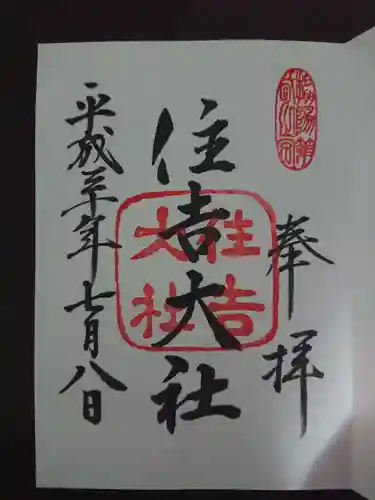 奉拝
住吉大社
住吉
大社
平成三十年七月八日